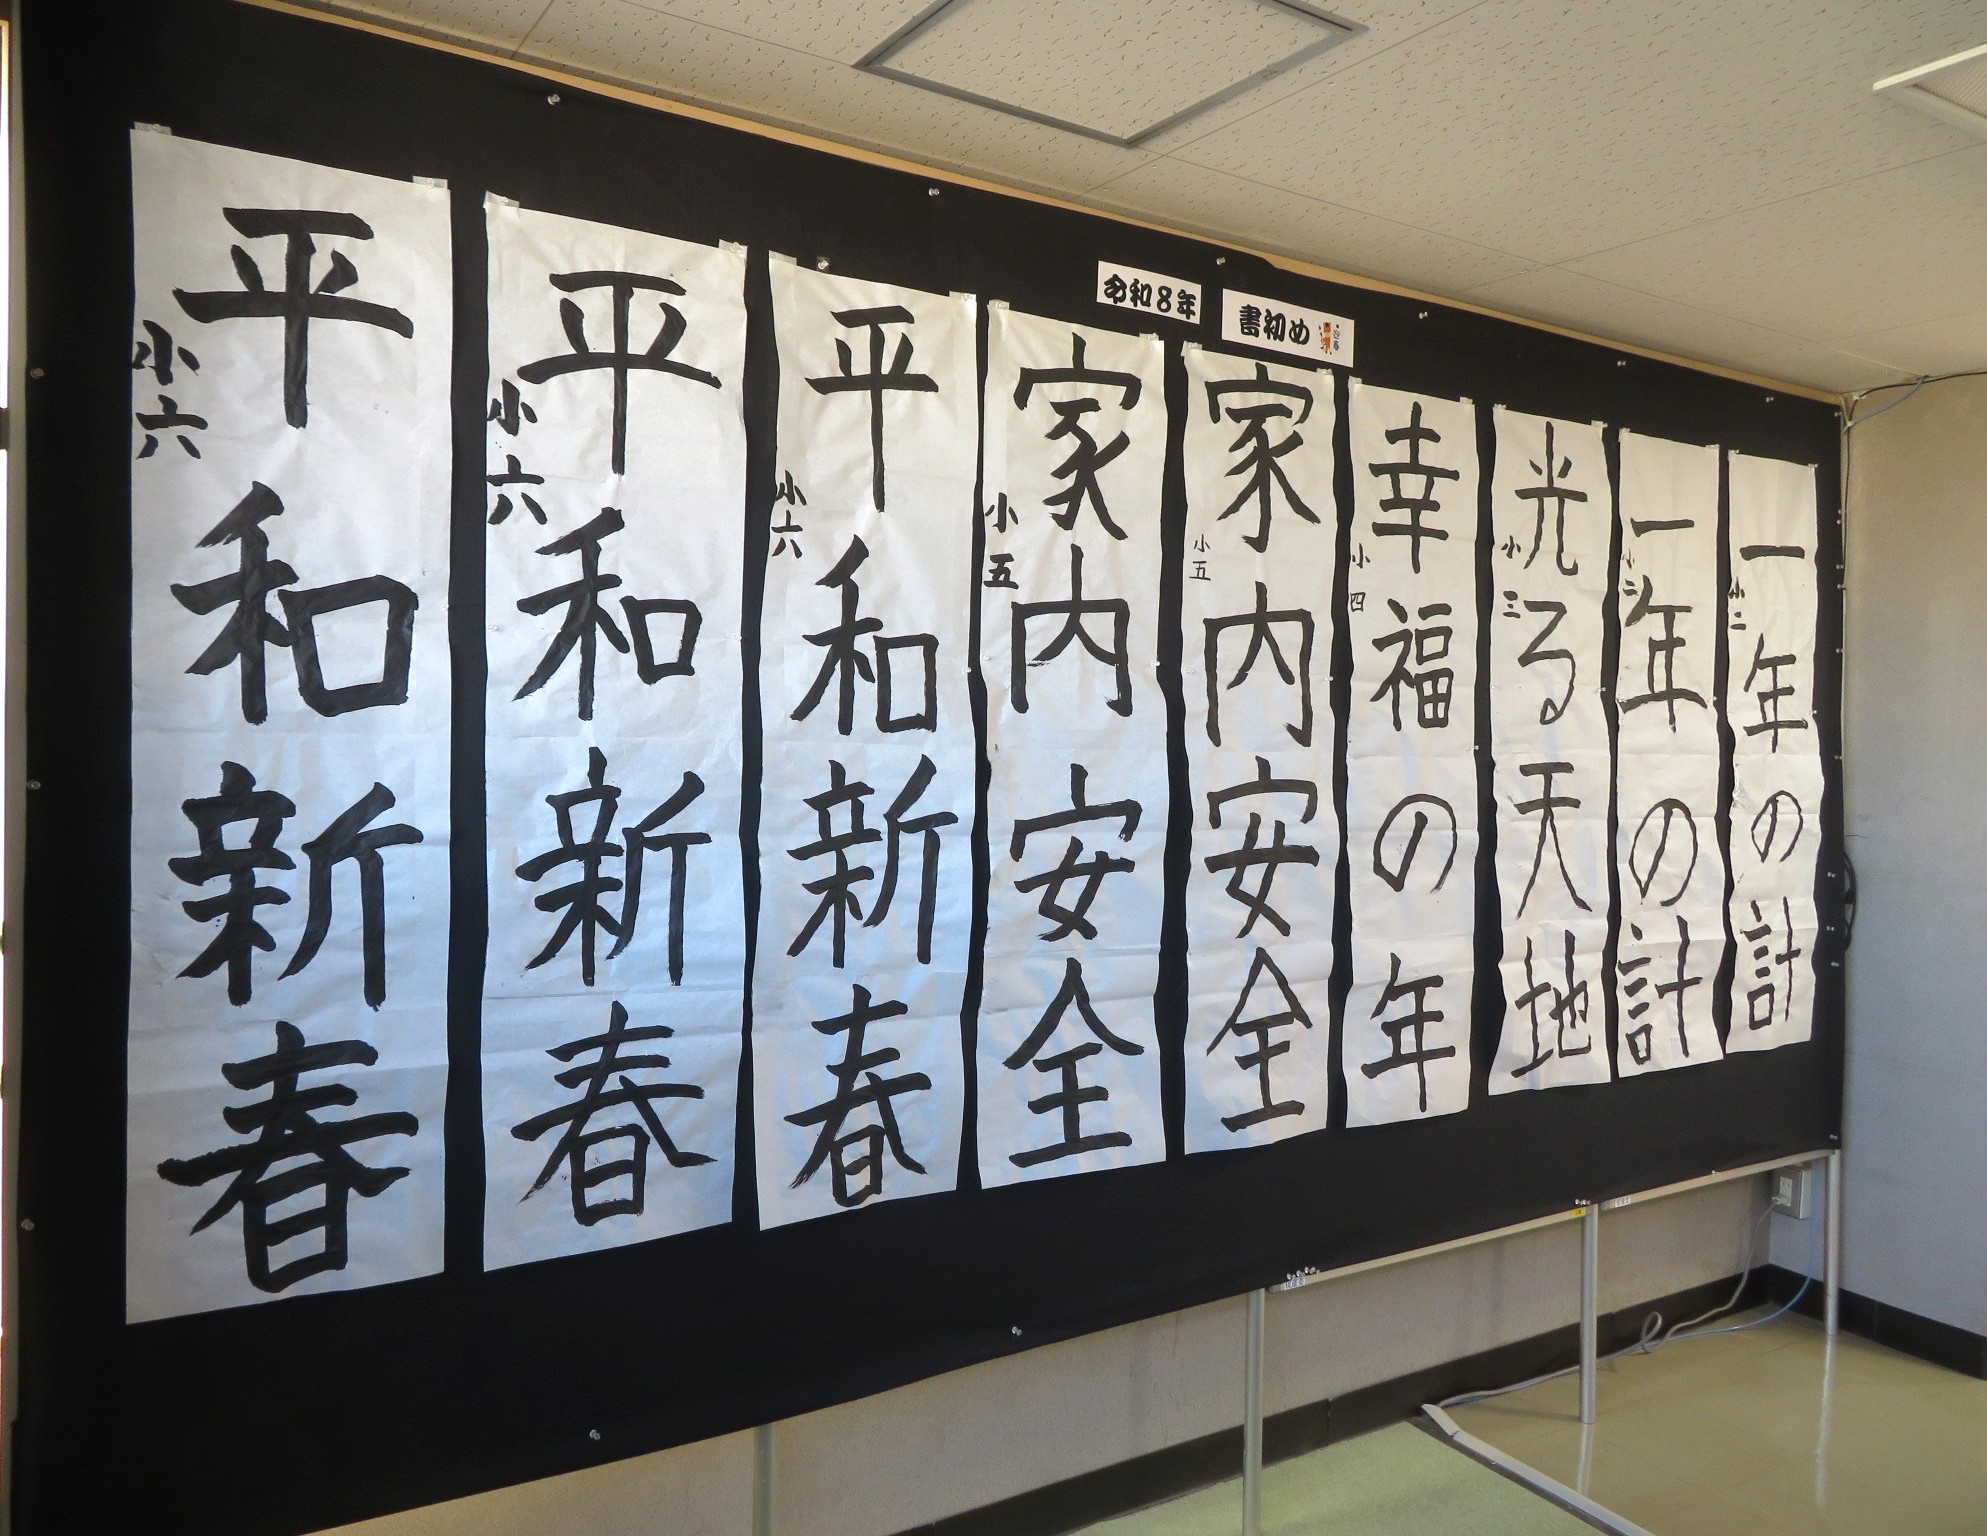 令和8年
書初め
迎春
一年の計
小二
一年の計
小二
光る天地
小三
幸福の年
小四
家内安全
小五
家内安全
小五
平和新春
小六
平和新春
小六
平和新春
小六